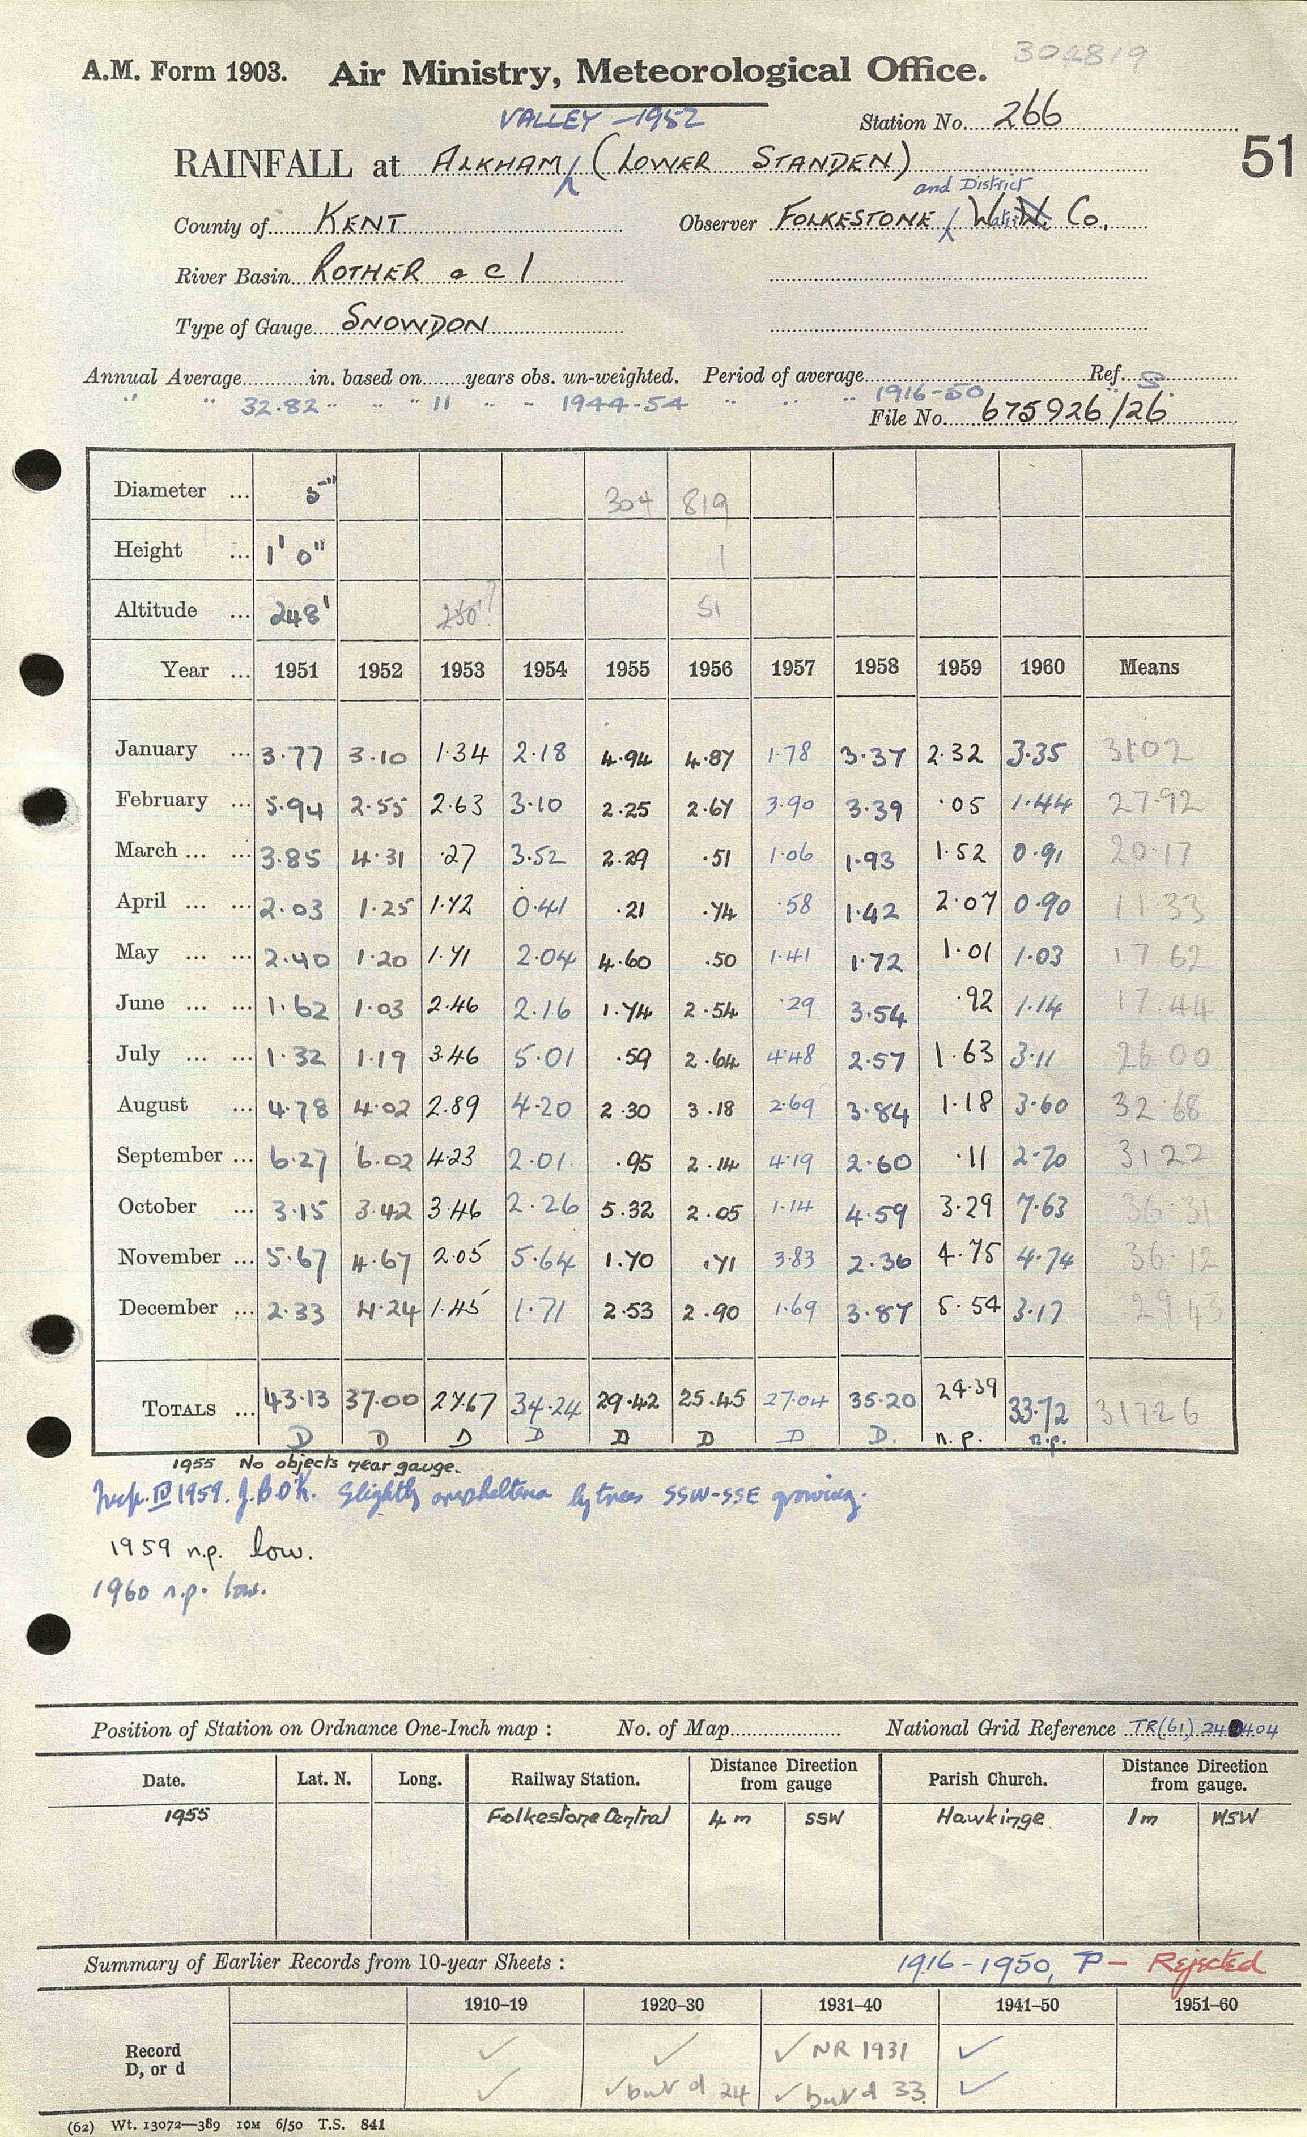 304819
A.M. Form 1903. Air Ministry, Meteorological Office.
VALLEY -1952
Station No. 266
51
RAINFALL at ALKHAM (LOWER STANDEN)
and District
County of KENT Observer FOLKESTONE W.W. Co.
River Basin ROTHER a c 1
Type of Gauge SNOWDON
Annual Average in. based on years obs. un-weighted. Period of average Ref. S
" " 32.82 " " " 11 " " 1944-54 " " " 1916-50
File No. 675926/26
Diameter ... 5" 304 819
Height ... 1' 0" 1
Altitude ... 248' 250'? 51
Year ... 1951 1952 1953 1954 1955 1956 1957 1958 1959 1960 Means
January ... 3.77 3.10 1.34 2.18 4.94 4.87 1.78 3.37 2.32 3.35 31.02
February ... 5.94 2.55 2.63 3.10 2.25 2.67 3.90 3.39 .05 1.44 27.92
March ... ... 3.85 4.31 .27 3.52 2.29 .51 1.06 1.93 1.52 0.91 20.17
April ... ... 2.03 1.25 1.72 0.41 .21 .74 .58 1.42 2.07 0.90 11.33
May ... ... 2.40 1.20 1.71 2.04 4.60 .50 1.41 1.72 1.01 1.03 17.62
June ... ... 1.62 1.03 2.46 2.16 1.74 2.54 .29 3.54 .92 1.14 17.44
July ... ... 1.32 1.19 3.46 5.01 .59 2.64 4.48 2.57 1.63 3.11 26.00
August ... 4.78 4.02 2.89 4.20 2.30 3.18 2.69 3.84 1.18 3.60 32.68
September ... 6.27 6.02 4.23 2.01 .95 2.14 4.19 2.60 .11 2.70 31.22
October ... 3.15 3.42 3.46 2.26 5.32 2.05 1.14 4.59 3.29 7.63 36.31
November ... 5.67 4.67 2.05 5.64 1.70 .71 3.83 2.36 4.75 4.74 36.12
December ... 2.33 4.24 1.45 1.71 2.53 2.90 1.69 3.87 5.54 3.17 29.43
TOTALS ... 43.13 37.00 27.67 34.24 29.42 25.45 27.04 35.20 24.39 33.72 317.26
D D D D D D D D. n.p. n.p.
1955 No objects near gauge.
Insp. IV 1959. J.B.O'K. Slightly by trees SSW-SSE growing.
1959 n.p. low.
1960 n.p. low.
Position of Station on Ordnance One-Inch map : No. of Map National Grid Reference TR(61) 240404
Date. Lat. N. Long. Railway Station. Distance from gauge Direction Parish Church. Distance from gauge. Direction
1955 Folkestone Central 4 m SSW Hawkinge 1m WSW
Summary of Earlier Records from 10-year Sheets : 1916-1950, P - Rejected
1910–19 1920–30 1931–40 1941–50 1951–60
Record ✓ ✓ ✓ NR 1931 ✓
D, or d ✓ ✓ but d 24 ✓ but d 33 ✓
(62) Wt. 13072—389 10M 6/50 T.S. 841